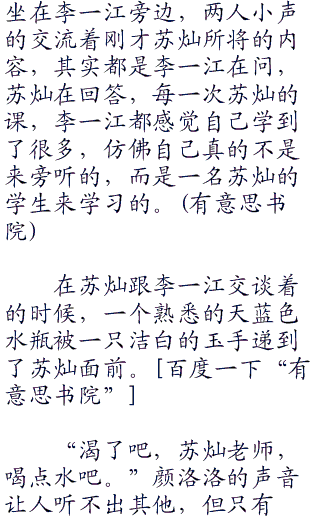 坐在李一江旁边，两人小声
的交流着刚才苏灿所将的内
容，其实都是李一江在问，
苏灿在回答，每一次苏灿的
课，李一江都感觉自己学到
了很多，仿佛自己真的不是
来旁听的，而是一名苏灿的
学生来学习的。(有意思书
院)
在苏灿跟李一江交谈着
的时候，一个熟悉的天蓝色
水瓶被一只洁白的玉手递到
了苏灿面前。[百度一下“有
意思书院”]
“渴了吧，苏灿老师，
喝点水吧。”颜洛洛的声音
让人听不出其他，但只有